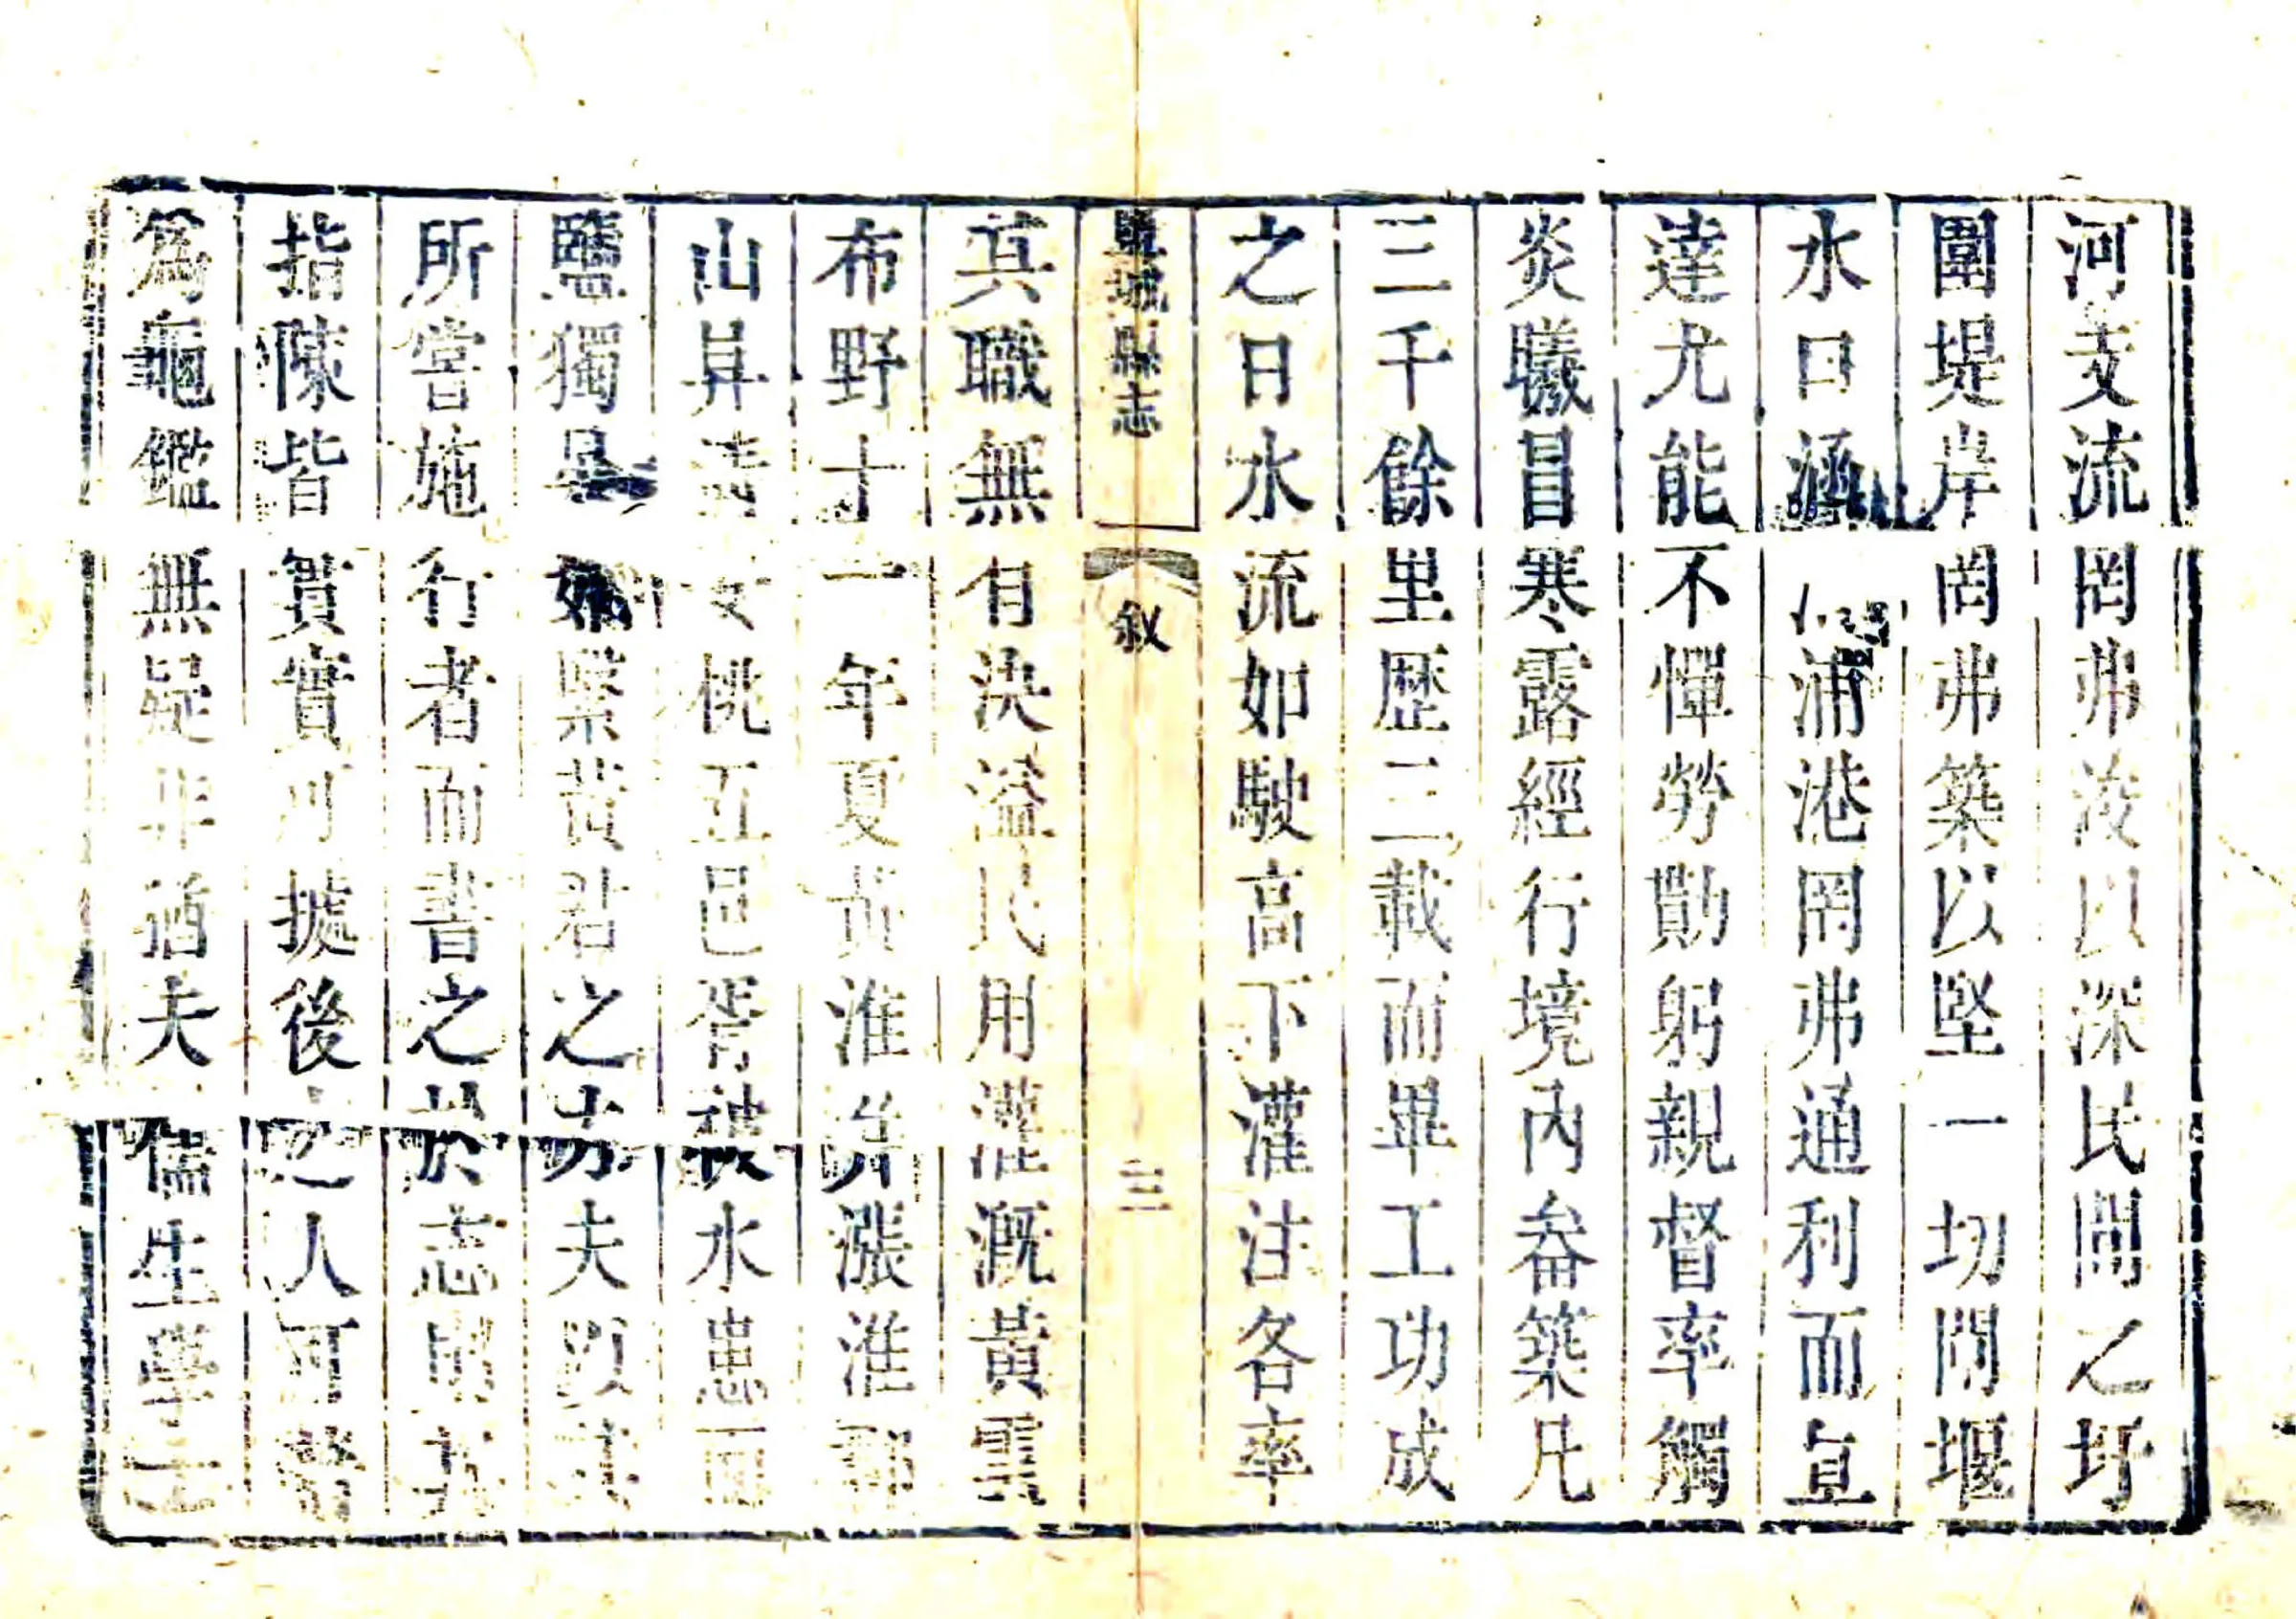 河支流罔弗浚以深民間之圩
圍堤岸罔弗築以堅一切閘堰
水口涵浦港罔弗通利而直
達尤能不憚勞勩躬親督率觸
炎曦冒寒露經行境內畚築凡
三千餘里歷三載而畢工功成
之日水流如駛高下灌注各率
鹽城縣志
叙
三
其職無有決溢民用灌溉黃雲
布野十一年夏黃淮并漲淮郡
山昇清安桃五邑胥被水患而
鹽獨晏如繄黃君之力夫以其
所嘗施行者而書之於志
指陳皆實可據後之人
爲龜鑑無疑非猶夫儒生學士